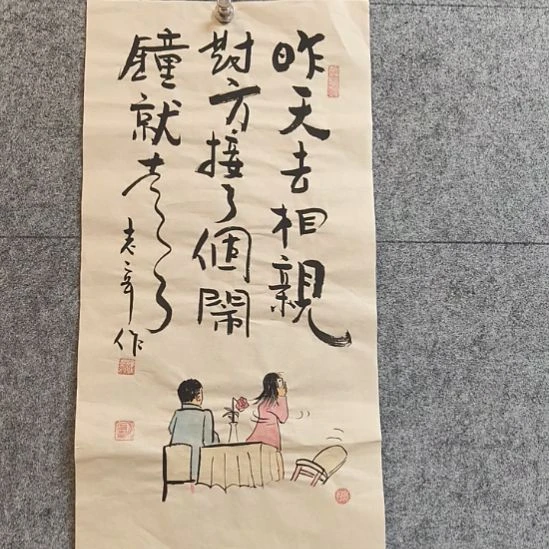 昨天去相親
對方接了個鬧
鐘就走了
老 作